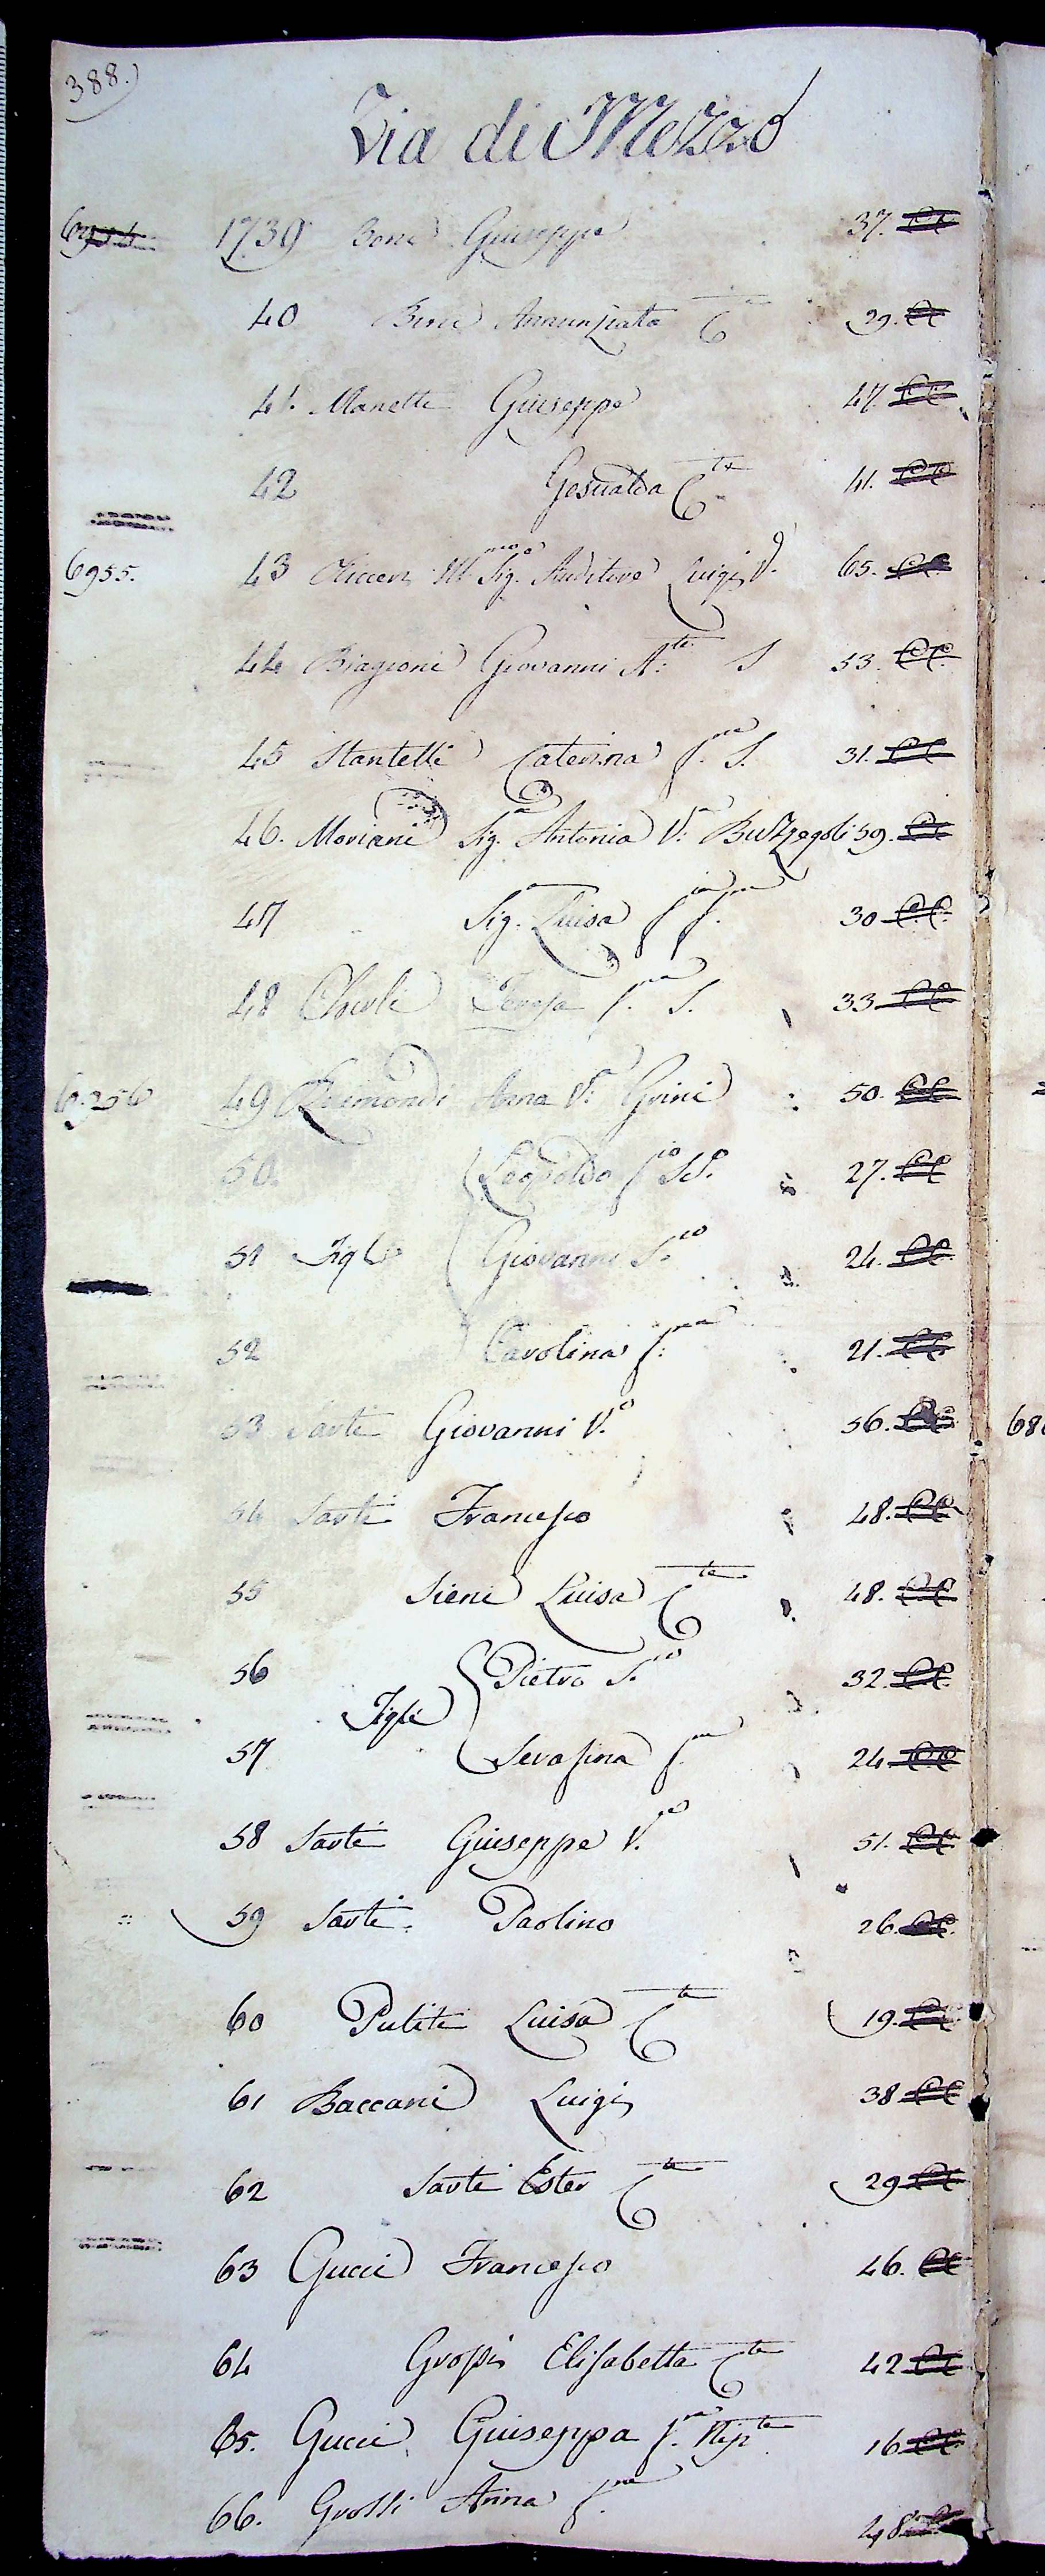 388.)
Via di Mezzo
1739 Boni Giuseppe 37. CC
40 Bini Annunziata C.te 29. CC
41. Manetti Giuseppe 47. CC
42 Gesualda C.ta 41. CC
6955. 43 Ill.mo Sig. Auditore Luigi V. 65. CC
44 Biagioni Giovanni A.te S 53. CC
45 Stantelli Caterina f.na S. 31. CC
46. Moriani Sig.a Antonia V.a Buzzegoli 59. CC
47 Sig.a Luisa 30 CC
48 Teresa f.na S. 33 CC
49 Raimondi Anna V.a Grini 50. CC
50. Leopoldo 27. CC
51 Figli Giovanni S.co 24. CC
52 Carolina f.na 21. CC
53 Sarti Giovanni V.o 56. CC
54 Sarti Francesco 48. CC
55 Sieni Luisa C.te 48. CC
56 Pietro S.co 32. CC
Figli
57 Serafina f.na 24 CC
58 Sarti Giuseppe V.o 51. CC
59 Sarti Paolino 26. CC
60 Puliti Luisa C.te 19. CC
61 Baccani Luigi 38 CC
62 Sarti Ester C.te 29 CC
63 Gucci Francesco 46. CC
64 Grossi Elisabetta C.te 42 CC
65. Gucci Giuseppa f.na Nip.te 16 CC
66. Grossi Anna f.na 48